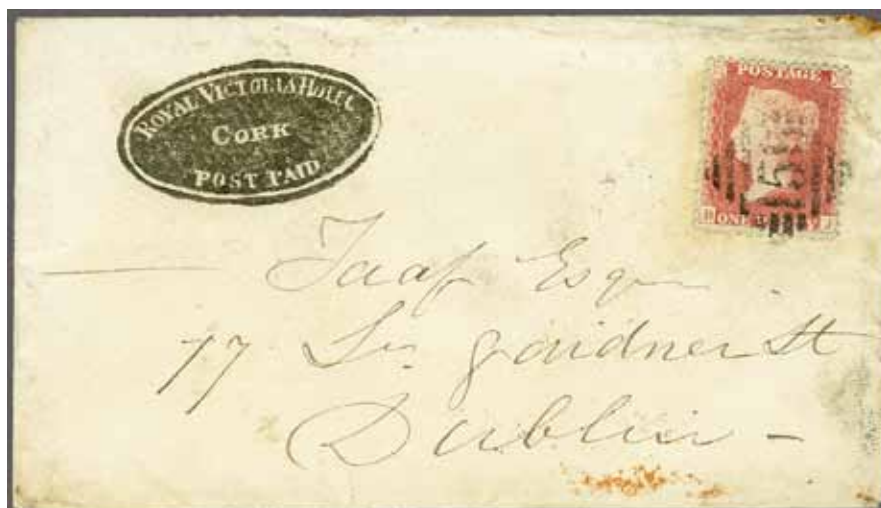 ROYAL VICTORIA HOTEL
CORK
POST PAID
POSTAGE
ONE PENNY
Taaf Esqr
77 Lr. Gardiner St
Dublin -